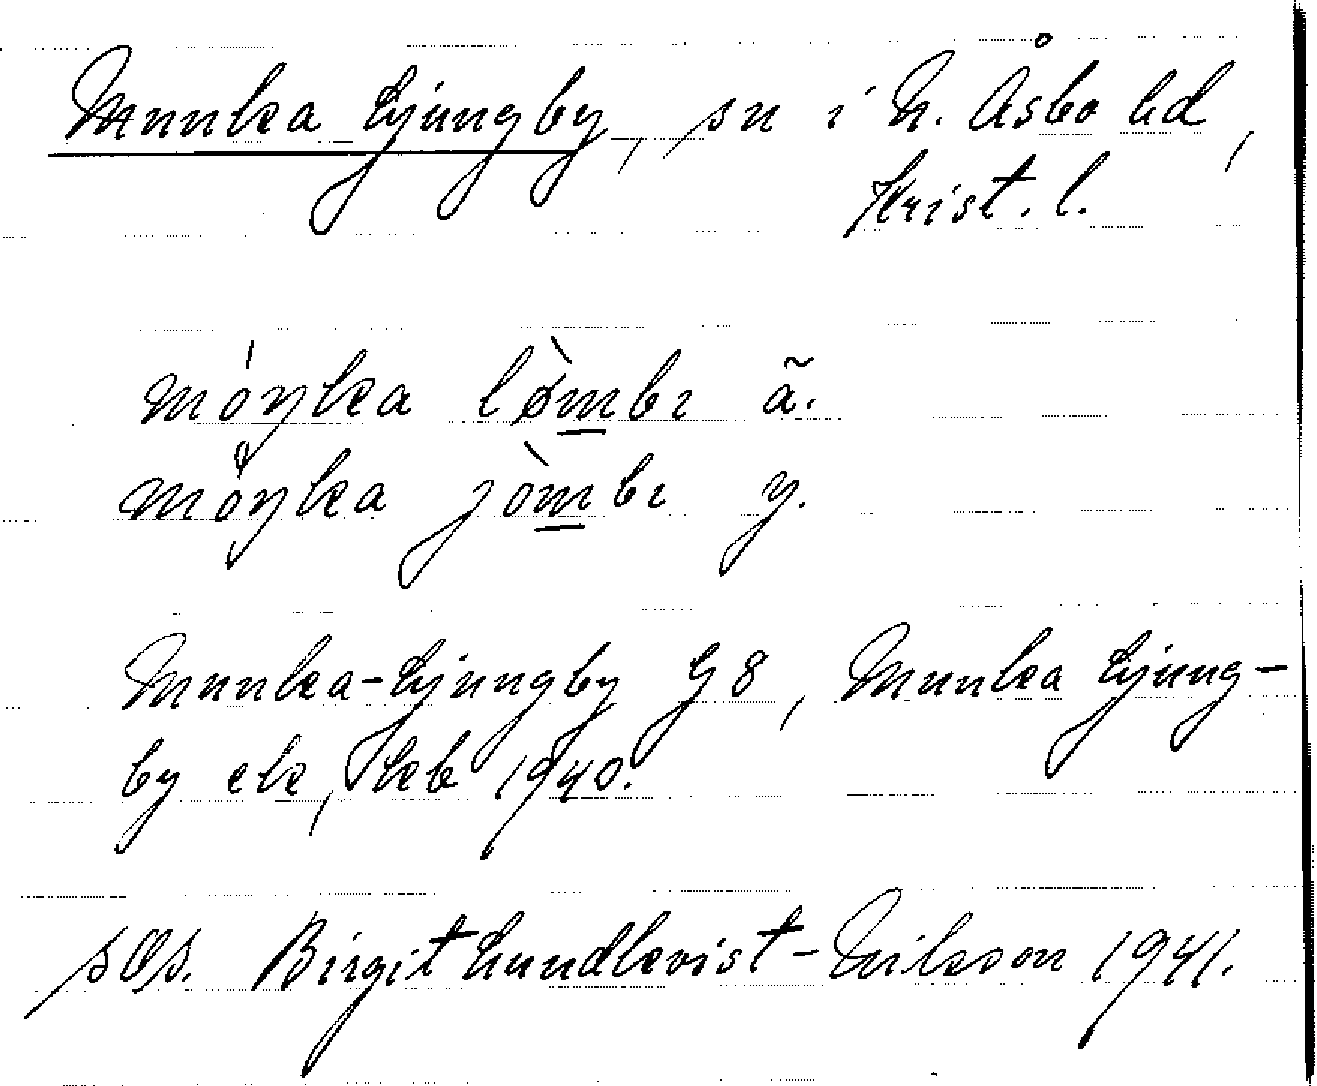 Munka Ljungby, sn i N. Åsbo hd,
Krist. l.
móŋka lømbı ã.
móŋka jòmbı y.
Munka-Ljungby G8, Munka Ljung-
by ek, 1940.
Birgit Lundkvist-Nilsson 1941.